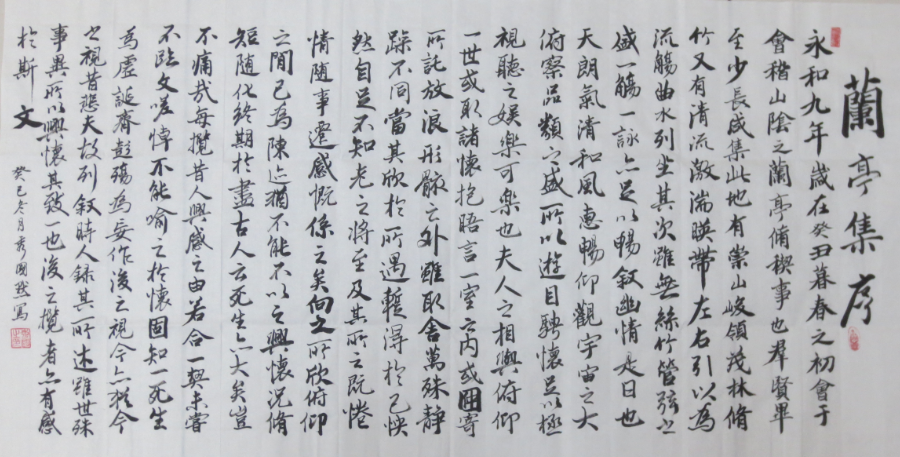 蘭亭集序
永和九年歲在癸丑暮春之初會于
會稽山陰之蘭亭脩稧事也羣賢畢
至少長咸集此地有崇山峻領茂林脩
竹又有清流激湍暎帶左右引以為
流觴曲水列坐其次雖無絲竹管弦之
盛一觴一詠亦足以暢敘幽情是日也
天朗氣清和風惠暢仰觀宇宙之大
俯察品類之盛所以遊目騁懷足以極
視聽之娛樂可樂也夫人之相與俯仰
一世或取諸懷抱晤言一室之內或因寄
所託放浪形骸之外雖取舍萬殊靜
躁不同當其欣於所遇蹔得於己怏
然自足不知老之將至及其所之既惓
情隨事遷感慨係之矣向之所欣俯仰
之間已為陳迹猶不能不以之興懷況脩
短隨化終期於盡古人云死生亦大矣豈
不痛哉每攬昔人興感之由若合一契未嘗
不臨文嗟悼不能喻之於懷固知一死生
為虛誕齊彭殤為妄作後之視今亦猶今
之視昔悲夫故列敘時人錄其所述雖世殊
事異所以興懷其致一也後之攬者亦有感
於斯文
癸巳冬月國寫